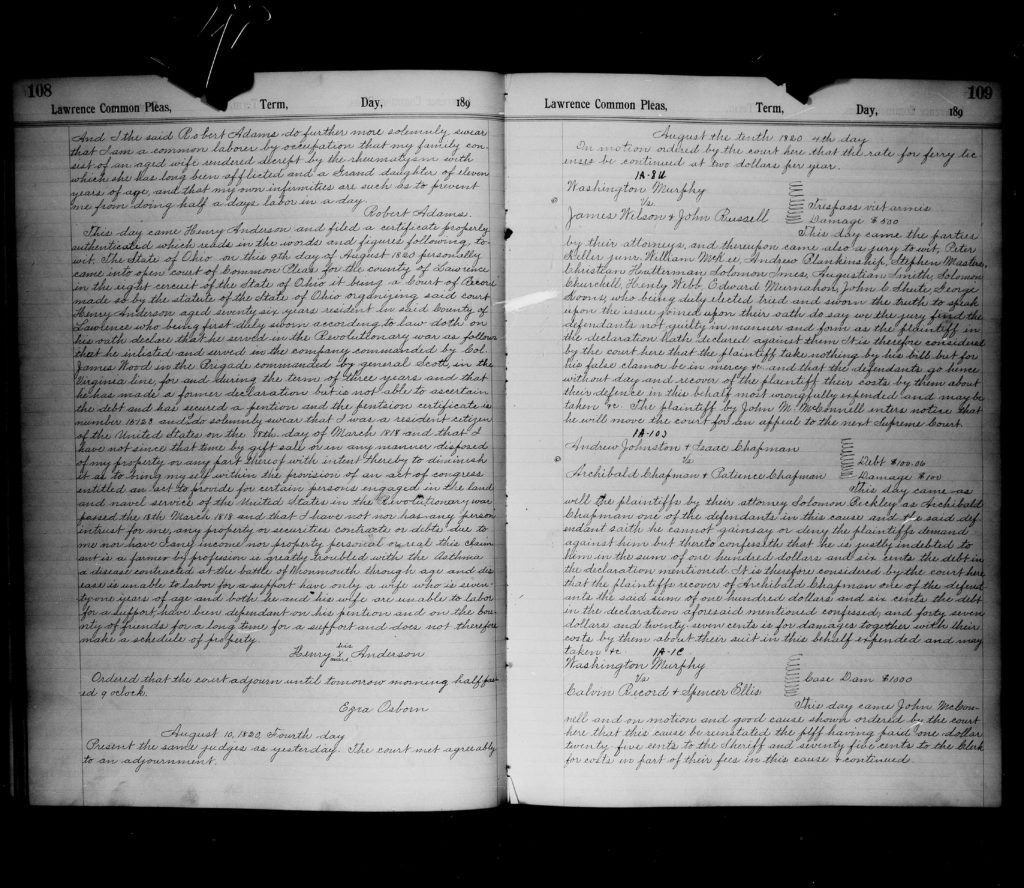 108
Lawrence Common Pleas, Term, Day, 189
And I the said Robert Adams do further more solemnly swear
that I am a common laborer by occupation that my family con
sist of an aged wife rendered decrept by the rheumatysm with
which she has long been afflicted and a Grand daughter of eleven
years of age, and that my own infirmities are such as to prevent
me from doing half a days labor in a day.
Robert Adams.
This day came Henry Anderson and filed a certificate properly
authenticated which reads in the words and figures following, to-
wit, The State of Ohio on this 9th day of August 1820 personally
came into open court of Common Pleas for the county of Lawrence
in the eight circuit of the State of Ohio it being a Court of Record
made so by the statute of the State of Ohio organizing said court
Henry Anderson aged seventy six years resident in said County of
Lawrence who being first duly sworn according to law doth on
his oath declare that he served in the Revolutionary war as follows
that he inlisted and served in the company commanded by Col.
James Wood in the Brigade commanded by general Scott, in the
Virginia line, for and during the term of three years and that
he has made a former declaration but is not able to ascertain
the debt and has secured a pention and the pentsion certificate is
number 18123 and do solemnly swear that I was a resident citizen
of the United States on the 18th day of March 1818 and that I
have not since that time by gift sale or in any manner disposed
of my property or any part thereof with intent thereby to diminish
it as to bring my self within the provision of an act of congress
entitled an act to provide for certain persons engaged in the land
and navel service of the United States in the Revolutionary war
passed the 18th March 1818 and that I have not nor has any person
intrust for me, any property or securities contracts or debts due to
me nor have I any income nor property personal or real this claim
ant is a farmer by profession is greatly troubled with the Asthma
a disease contracted at the battle of Monmouth through age and dis
ease is unable to labor for a support have only a wife who is seven-
ty one years of age and both he and his wife are unable to labor
for a support have been dependant on his pention and on the boun
ty of friends for a long time for a support and does not therefore
make a schedule of property.
Henry his x mark Anderson
Ordered that the court adjourn until tomorrow morning half pas
ed 9 oclock.
Ezra Osborn
August 10, 1820, Fourth day
Present the same judges as yesterday. The court met agreeably
to an adjournment.
109
Lawrence Common Pleas, Term, Day, 189
August the tenth 1820 4th day
On motion ordered by the court here that the rate for ferry lic
enses be continued at two dollars per year.
1A-84
Washington Murphy
vs
James Wilson & John Russell
Trespass viet armis
Damage $500
This day came the parties
by their attorneys, and thereupon came also a jury to wit, Peter
Keller junr. William McKee, Andrew Blankinship, Stephen Masters,
Christian Hutterman Solomon Ames, Augustian Smith, Solomon
Churchell, Henly Webb, Edward Murnahon, John C Shute, George
Koons, who being duly elected tried and sworn the truth to speak
upon the issue joined upon their oath do say we the jury find the
defendants not guilty in manner and form as the plaintiff in
the declaration hath declared against them It is therefore considered
by the court here that the plaintiff take nothing by his bill but for
his false clamor be in mercy &c. and that the defendants go hence
without day and recover of the plaintiff their costs by them about
their defence in this behalf most wrongfully expended and may be
taken &c. The plaintiff by John M. McConnell enters notice that
he will move the court for an appeal to the next Supreme Court.
1A-103
Andrew Johnston & Isaac Chapman
vs
Archibald Chapman & Patience Chapman
Debt $100.06
Damage $100
This day came as
well the plaintiffs by their attorney Solomon Beckley as Archibald
Chapman one of the defendants in this cause and the said def-
endant saith he cannot gainsay or deny the plaintiffs demand
against him but thereto confesseth that he is justly indebted to
them in the sum of one hundred dollars and six cents the debt in
the declaration mentioned. It is therefore considered by the court here
that the plaintiffs recover of Archibald Chapman one of the defend-
ants the said sum of one hundred dollars and six cints the debt
in the declaration aforesaid mentioned confessed, and forty seven
dollars and twenty seven cents is for damages together with their
costs by them about their suit in this behalf expended and may
taken &c 1A-1C
Washington Murphy
vs
Calvin Record & Spencer Ellis
Case Dam $1000
This day came John McCon-
nell and on motion and good cause shown ordered by the court
here that this cause be reinstated the plff having paid one dollar
twenty five cents to the Sheriff and seventy five cents to the Clerk
for costs in part of their fees in this cause & continued.